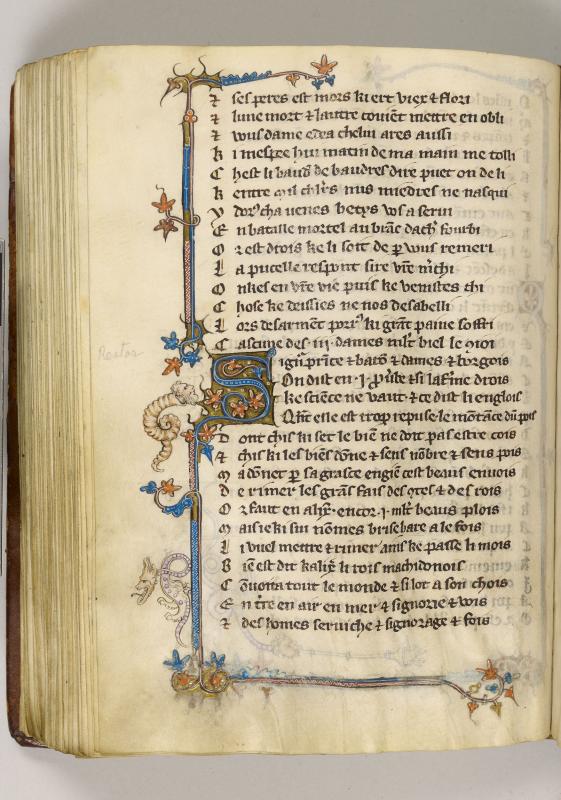 ⁊ ses peres est mors ki ert viex ⁊ flori
⁊ lune mort ⁊ lautre couiēt mettre en obli
⁊ vous dame edea chelui ares aussi
K i mesire hui matin de ma main me tolli
C hest li baud᷒ de baudres dire puet on de li
K entre mil chlr̄s nus miedres ne nasqui
E n bataille mortel au brāc dach᷒ fourbi
O r est drois ke li soit de p̱ vous remeri
L a pucelle respont sire vr̄e m̄chi
O nkes en vr̄e vie puis ke venistes chi
C hose ke deissies ne nos desabelli
L ors desarmēt ki grāt paine soffri
C ascune des .iij. dames mlt biel le
Restor
S ign᷒ prīce ⁊ barō ⁊ dames ⁊ borgois
On dist en .i. ⁊ si drois
Ke sciēce ne vaut ⁊ ce dist li englois
Qn̄t elle est trop repuse le mōtāce dū pois
D ont chis ki set le biē ne doit pas estre cois
⁊ chis ki les biēs dōne ⁊ sens nōbre ⁊ sens pois
M a dōnet p̱ sa grasce engiē cest beaus enuois
D e rimer les grās fais des ⁊ des rois
O r faut en alix᷒ encor .i. mlt beaus plois
M ais ie ki sui nōmes brisebare a le fois
L i vuel mettre ⁊ rimer ains ke passe li mois
B iē est dit kalix᷒ li rois machidonois
C ōquista tout le monde ⁊ si lot a son chois
E n tr̄e en air en mer ⁊ signorie ⁊ vois
⁊ des homes seruiche ⁊ signorage ⁊ fois